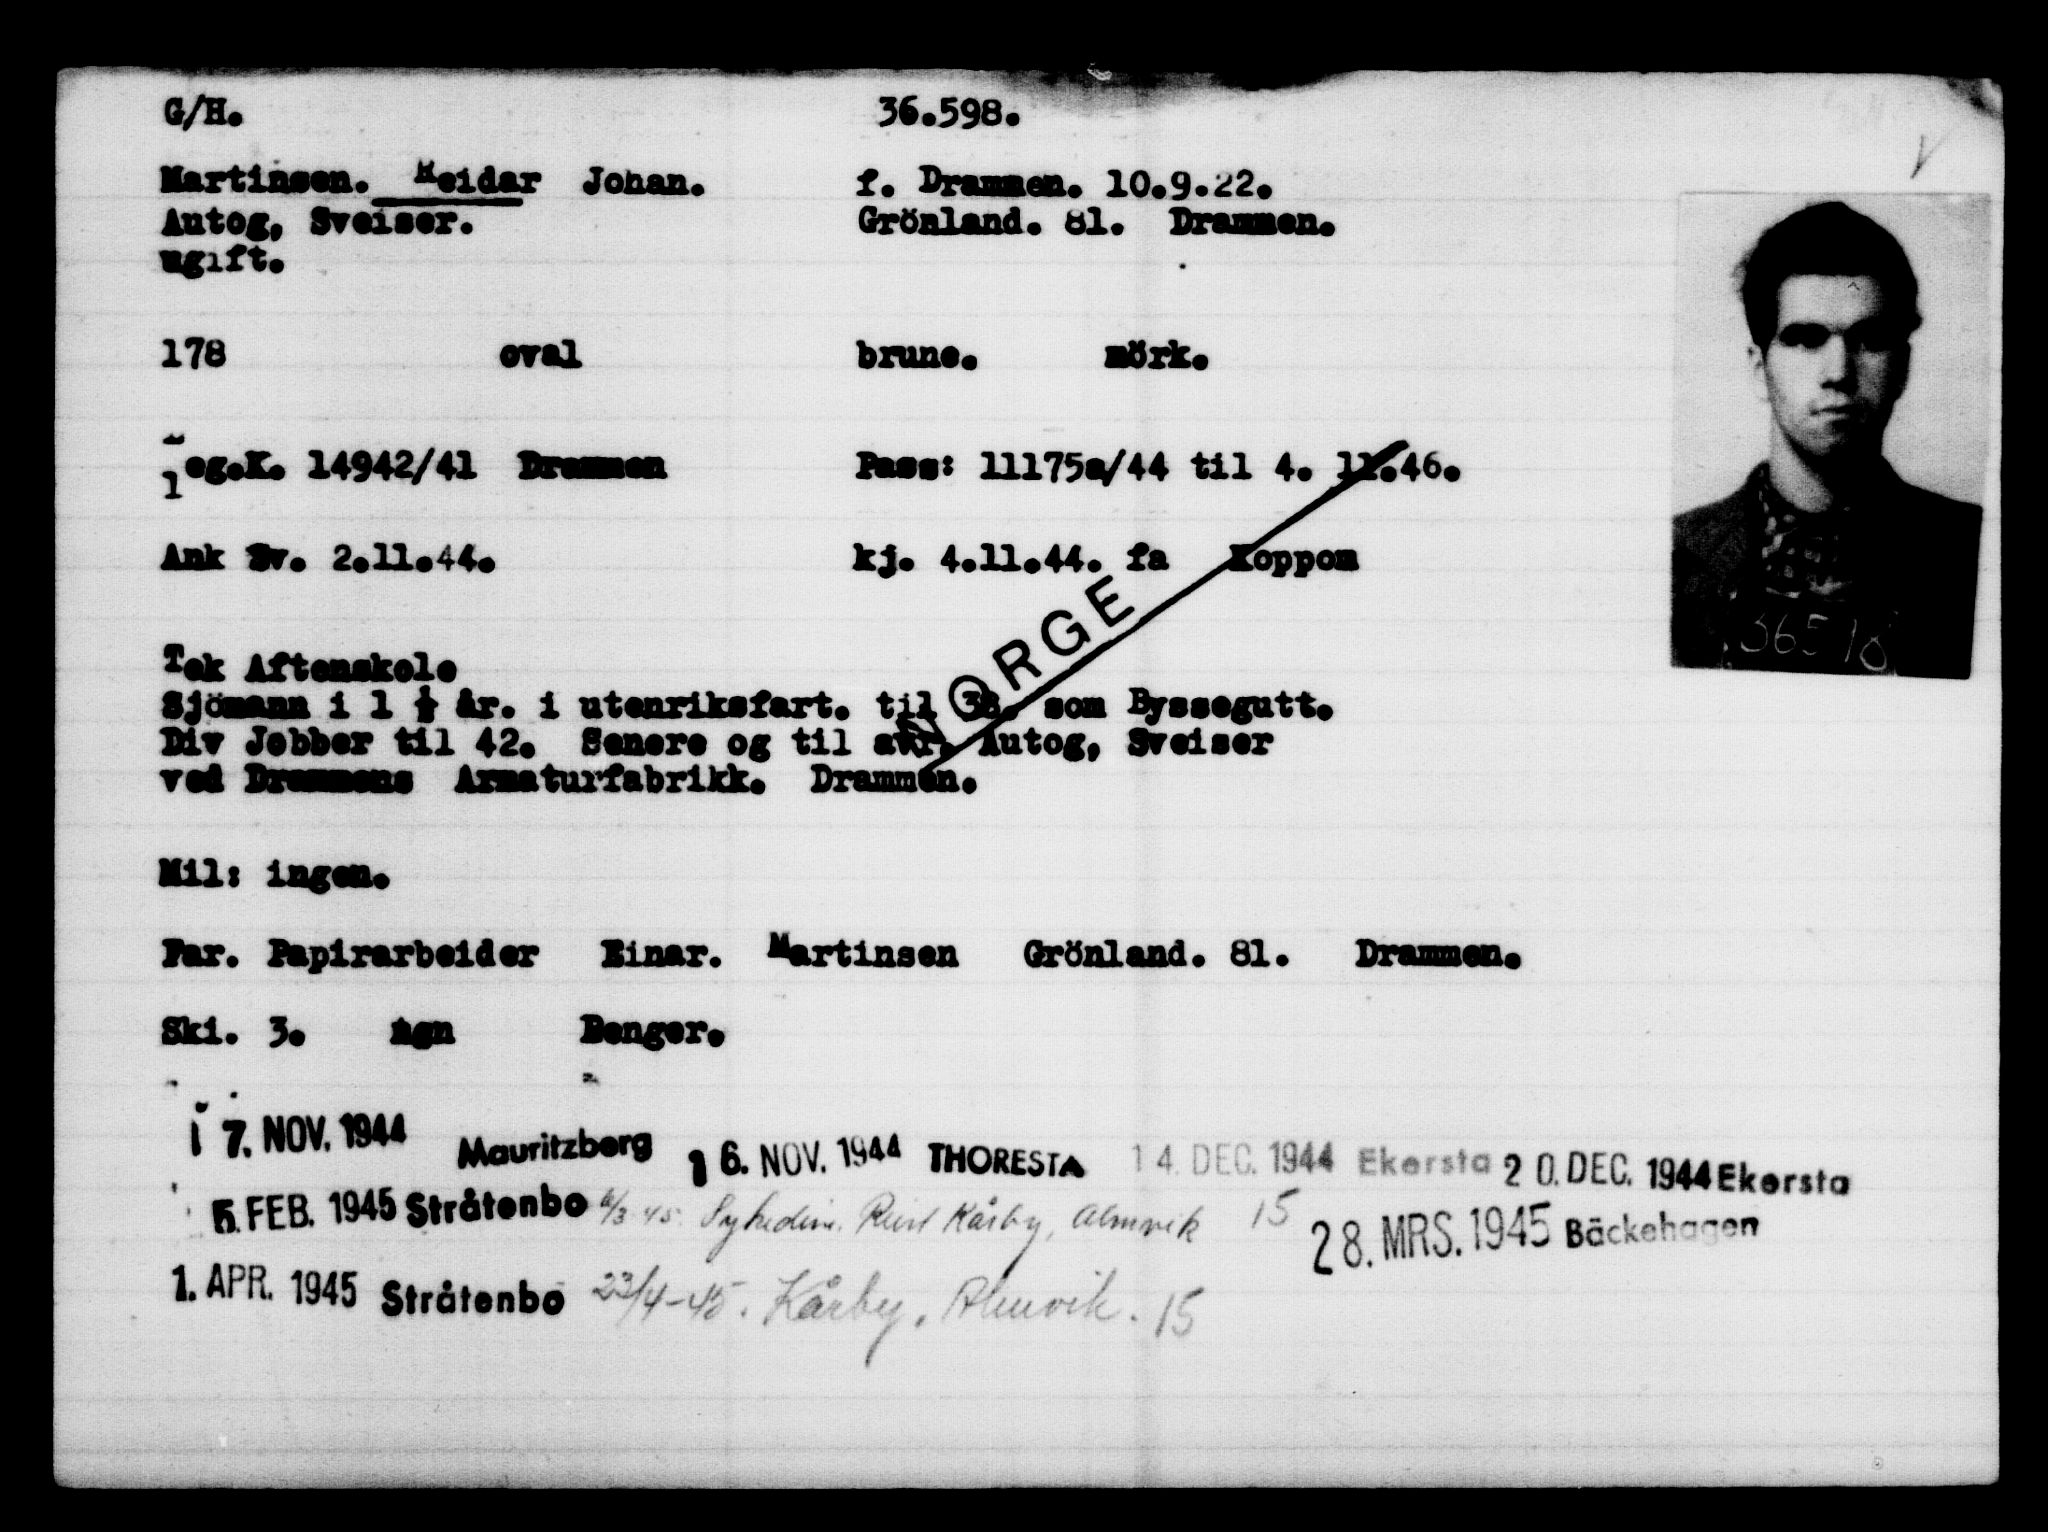 G/H. 36.598.
Martinsen. Reidar Johan. f. Drammen. 10.9.22.
Autog, Sveiser. Grönland. 81. Drammen.
ugift.
178 oval brune. mörk.
leg.K. 14942/41 Drammen Pass: 11175a/44 til 4. 11.46.
Ank Sv. 2.11.44. kj. 4.11.44. fa Koppom
NORGE
Tek Aftenskole
Sjömann i 1 ½ år. i utenriksfart. til 38. som Byssegutt.
Div Jobber til 42. Senere og til avr. Autog, Sveiser
ved Drammens Armaturfabrikk. Drammen.
Mil: ingen.
Far. Papirarbeider Einar. Martinsen Grönland. 81. Drammen.
Ski. 3. Agn Benger.
1 7. NOV. 1944 Mauritzberg 1 6. NOV. 1944 THORESTA 1 4. DEC. 1944 Ekersta 2 0. DEC. 1944 Ekersta
5. FEB. 1945 Stråtenbo 6/3-45. Kårby, Almvik 15 28. MRS. 1945 Bäckehagen
1. APR. 1945 Stråtenbo 23/4-45. Kårby. Almvik. 15